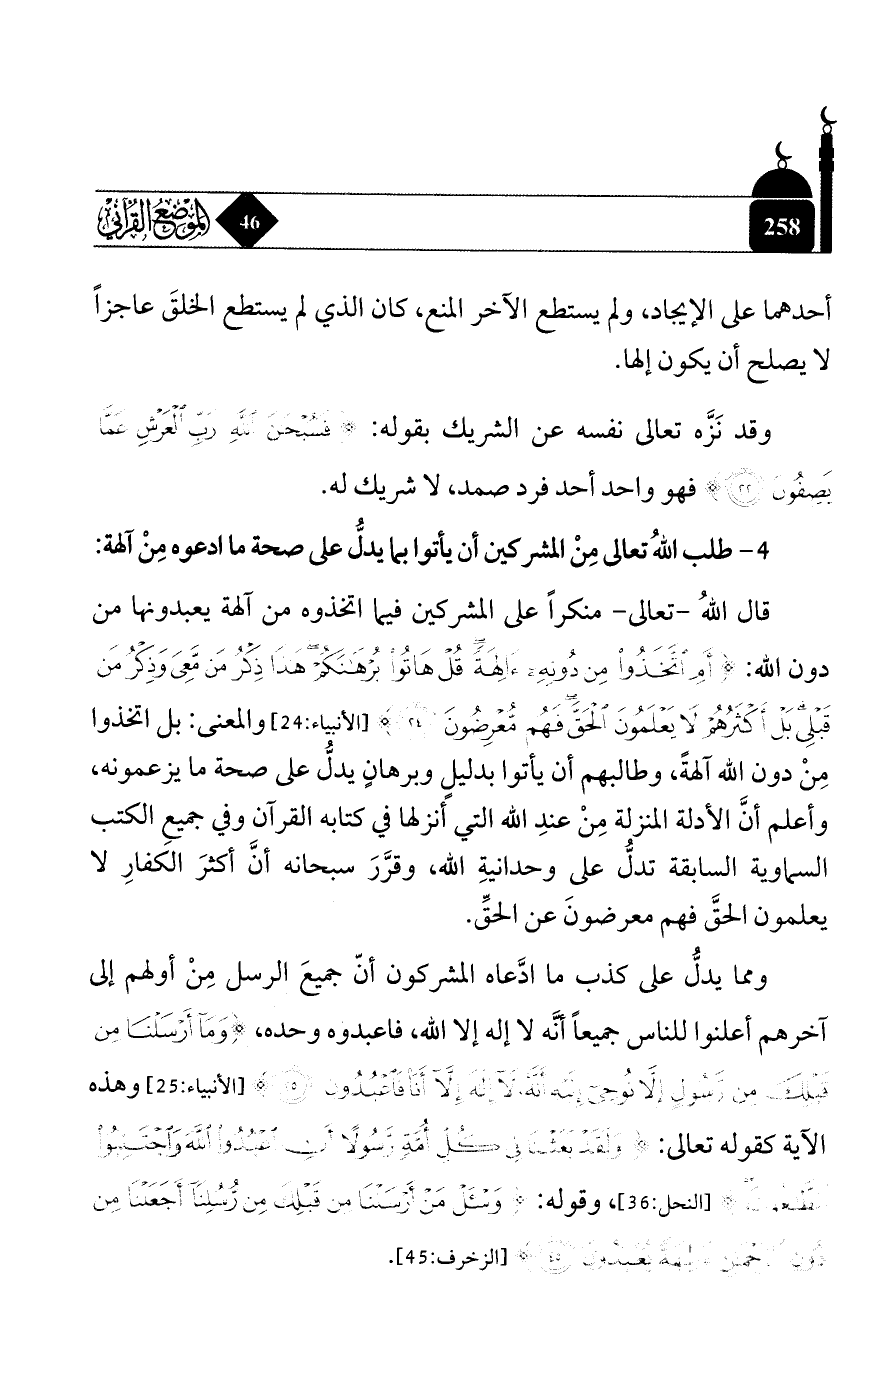 258
46 الموضع القرآني
أحدهما على الإيجاد، ولم يستطع الآخر المنع، كان الذي لم يستطع الخلقَ عاجزاً
لا يصلح أن يكون إلها.
وقد نَزَّه تعالى نفسه عن الشريك بقوله: ﴿ فَسُبْحَٰنَ ٱللَّهِ رَبِّ ٱلْعَرْشِ عَمَّا
يَصِفُونَ ٢٢ ﴾ فهو واحد أحد فرد صمد، لا شريك له.
4- طلب اللهُ تعالى مِنْ المشركين أن يأتوا بما يدلُّ على صحة ما ادعوه مِنْ آلهة:
قال اللهُ -تعالى- منكراً على المشركين فيما اتخذوه من آلهة يعبدونها من
دون الله: ﴿ أَمِ ٱتَّخَذُوا۟ مِن دُونِهِۦٓ ءَالِهَةً ۖ قُلْ هَاتُوا۟ بُرْهَٰنَكُمْ ۖ هَٰذَا ذِكْرُ مَن مَّعِىَ وَذِكْرُ مَن
قَبْلِى ۗ بَلْ أَكْثَرُهُمْ لَا يَعْلَمُونَ ٱلْحَقَّ ۖ فَهُم مُّعْرِضُونَ ٢٤ ﴾ [الأنبياء:24] والمعنى: بل اتخذوا
مِنْ دون الله آلهةً، وطالبهم أن يأتوا بدليلٍ وبرهانٍ يدلُّ على صحة ما يزعمونه،
وأعلم أنَّ الأدلة المنزلة مِنْ عندِ الله التي أنزلها في كتابه القرآن وفي جميعِ الكتب
السماوية السابقة تدلُّ على وحدانيةِ الله، وقرَّرَ سبحانه أنَّ أكثرَ الكفارِ لا
يعلمون الحقَّ فهم معرضونَ عن الحقِّ.
ومما يدلُّ على كذب ما ادَّعاه المشركون أنّ جميعَ الرسل مِنْ أولهم إلى
آخرهم أعلنوا للناس جميعاً أنَّه لا إله إلا الله، فاعبدوه وحده، ﴿ وَمَآ أَرْسَلْنَا مِن
قَبْلِكَ مِن رَّسُولٍ إِلَّا نُوحِىٓ إِلَيْهِ أَنَّهُۥ لَآ إِلَٰهَ إِلَّآ أَنَا۠ فَٱعْبُدُونِ ٢٥ ﴾ [الأنبياء:25] وهذه
الآية كقوله تعالى: ﴿ وَلَقَدْ بَعَثْنَا فِى كُلِّ أُمَّةٍ رَّسُولًا أَنِ ٱعْبُدُوا۟ ٱللَّهَ وَٱجْتَنِبُوا۟
ٱلطَّٰغُوتَ ﴾ [النحل:36]، وقوله: ﴿ وَسْـَٔلْ مَنْ أَرْسَلْنَا مِن قَبْلِكَ مِن رُّسُلِنَآ أَجَعَلْنَا مِن
دُونِ ٱلرَّحْمَٰنِ ءَالِهَةً يُعْبَدُونَ ٤٥ ﴾ [الزخرف:45].